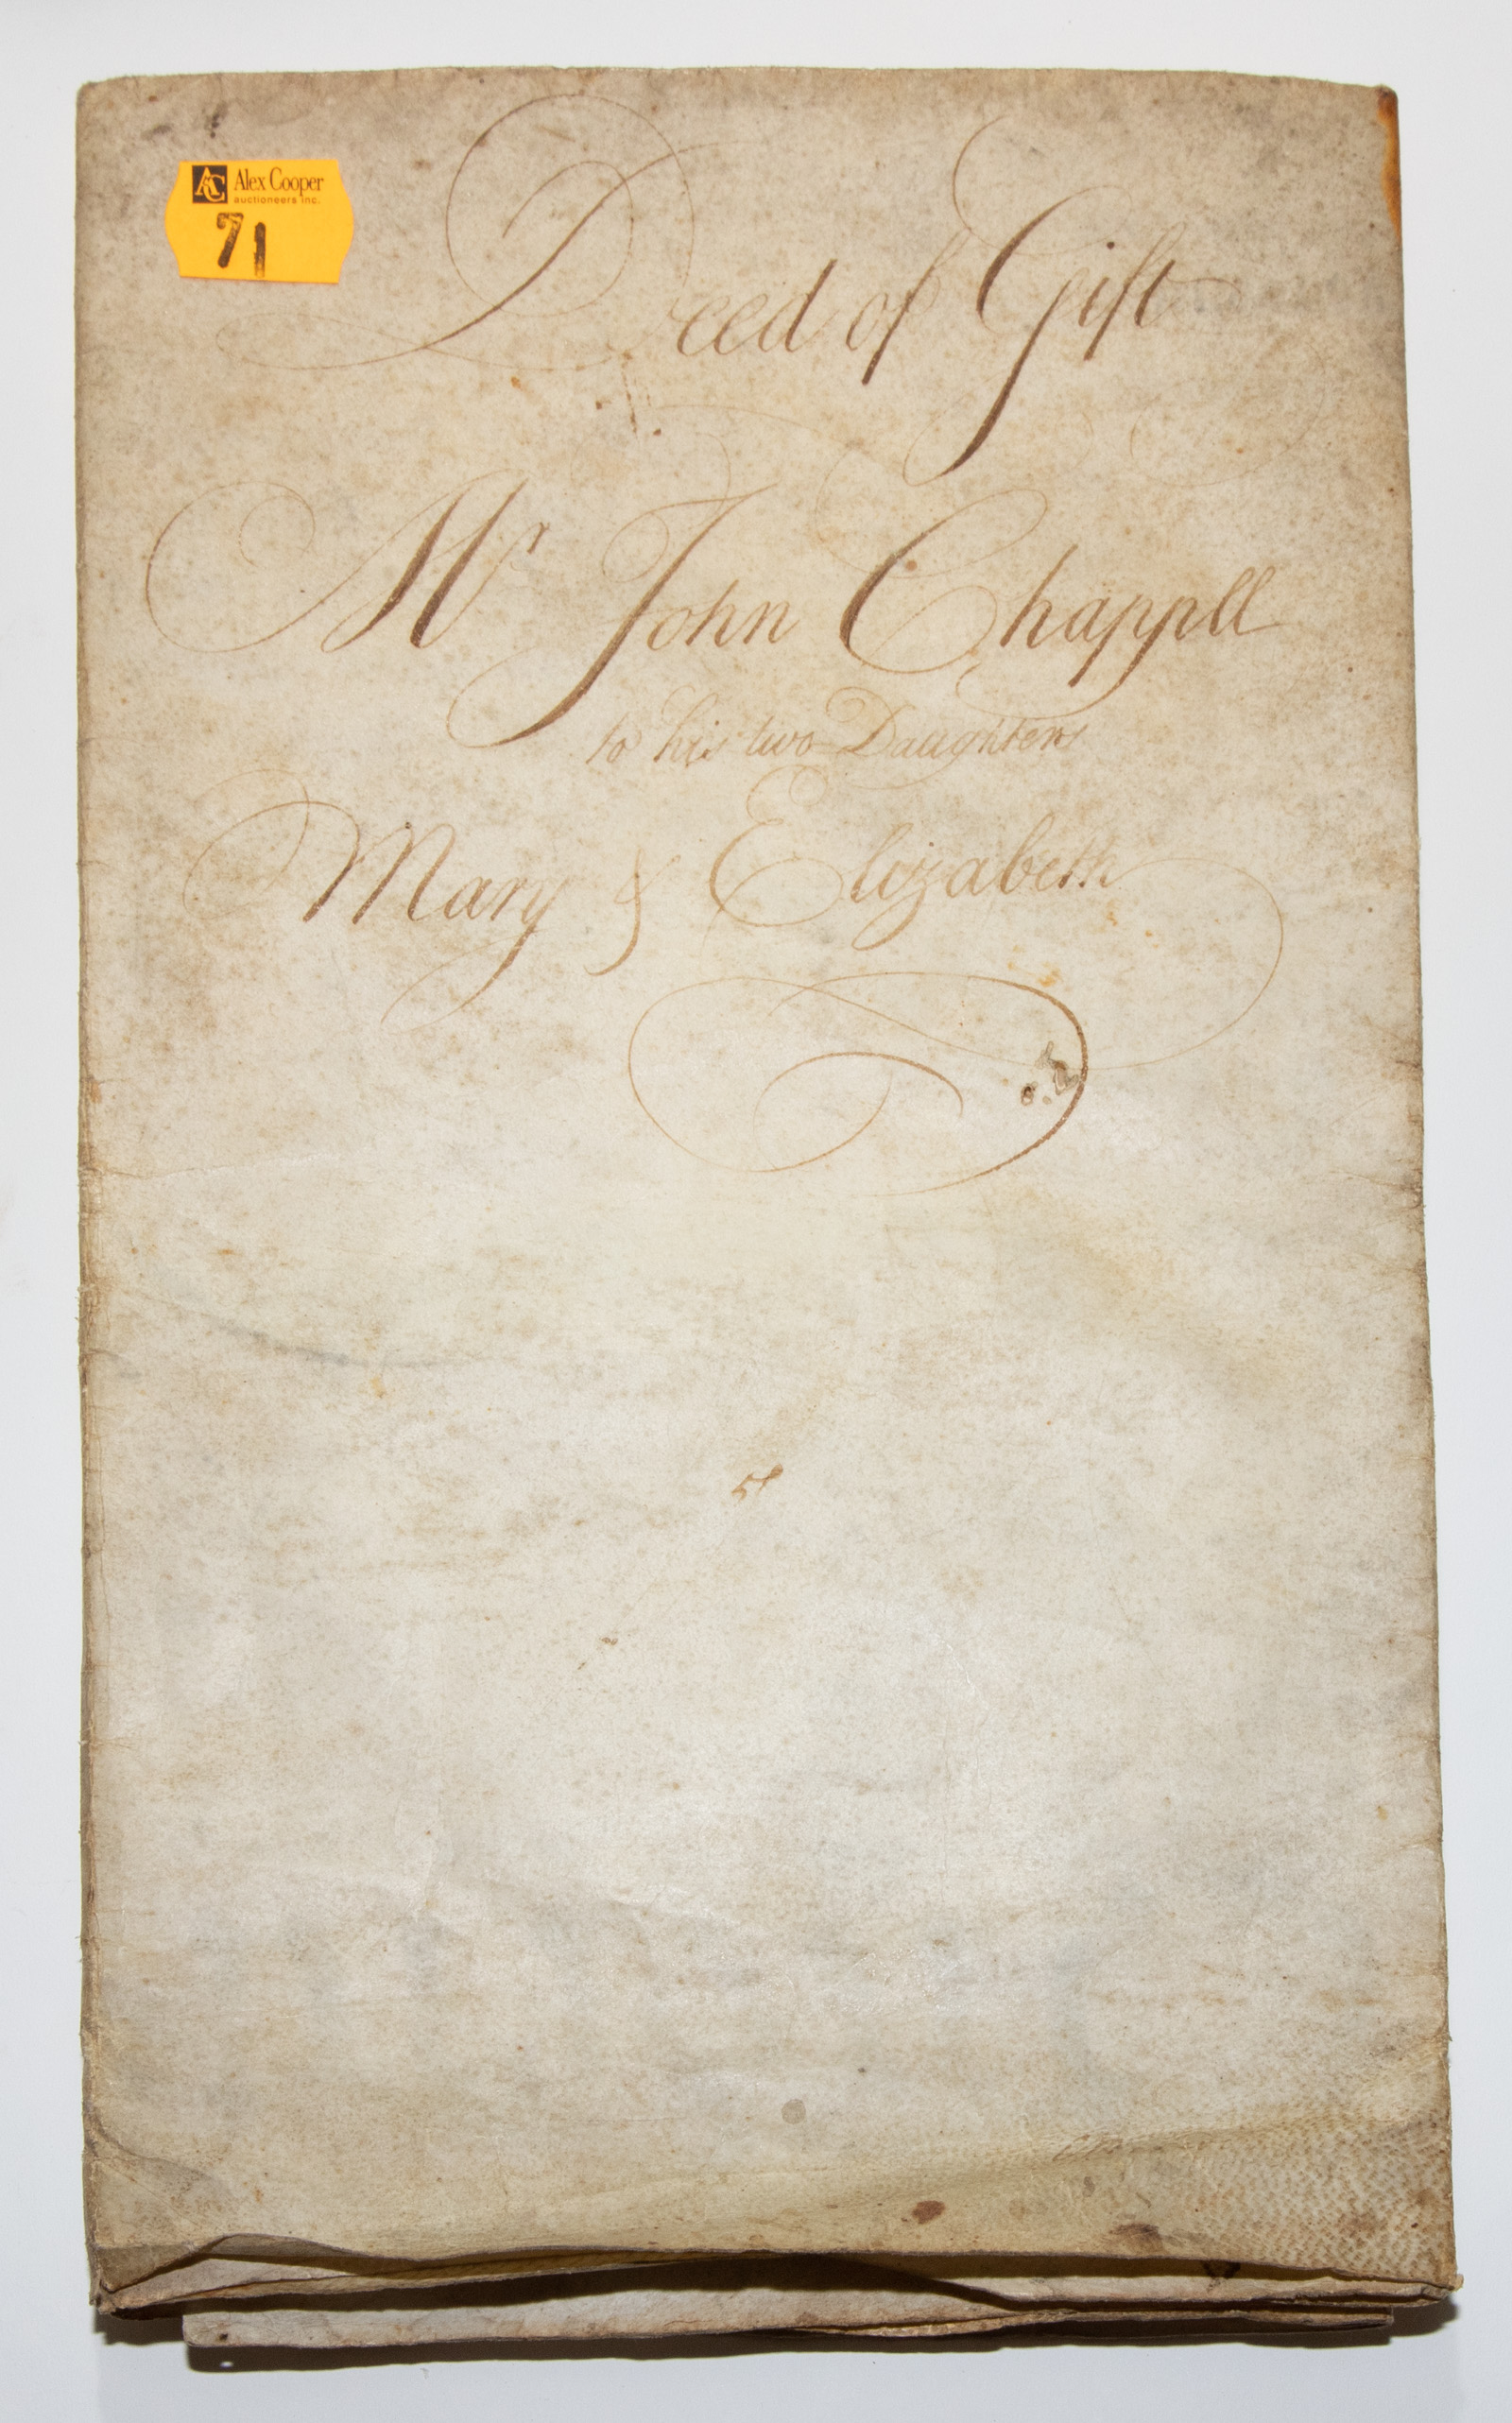 AC Alex Cooper
auctioneers inc.
71
Deed of Gift
Mr John Chappell
to his two Daughters
Mary & Elizabeth